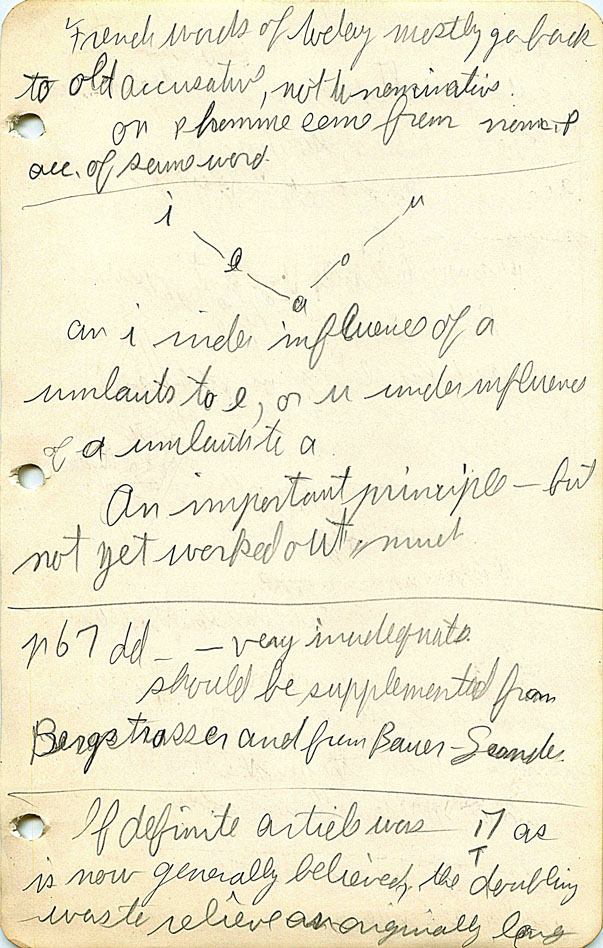 French words of today mostly go back
to old accusative, not to nominative.
on & homme come from nom. &
acc. of same word.
i u
e o
a
an i under influence of a
umlauts to e, or u under influence
of a umlauts to a
An important principle – but
not yet worked out much
p 67 dd – – very inadequate
should be supplemented from
Bergstrasser and from Bauer-Leander.
If definite article was הָ as
is now generally believed, the doubling
was to relieve an originally long